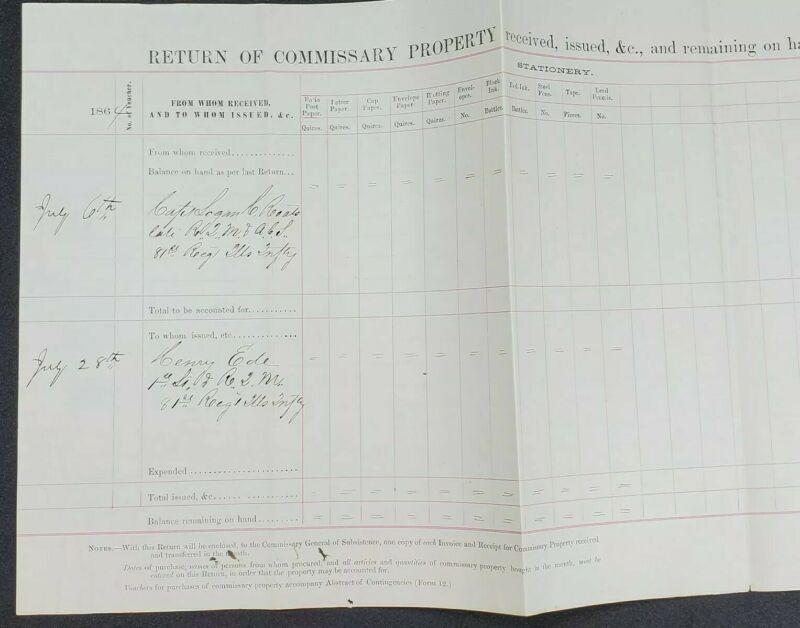 RETURN OF COMMISSARY PROPERTY received, issued, &c., and remaining on ha
STATIONERY.
1864
No. of Voucher.
FROM WHOM RECEIVED,
AND TO WHOM ISSUED, &c.
Folio Post Paper. Letter Paper. Cap Paper. Envelope Paper. Blotting Paper. Envelopes. Black Ink. Red Ink. Steel Pens. Tape. Lead Pencils.
Quires. Quires. Quires. Quires. Quires. No. Bottles. Bottles. No. Pieces. No.
From whom received
Balance on hand as per last Return
July 6th
Capt Logan H Roots
late R. Q. M. & A. C. S.
81st Reg't Ills Inftry
Total to be accounted for
To whom issued, etc
July 28th
Henry Ede
1st Lt. & R. Q. M.
81st Reg't Ills Inftry
Expended
Total issued, &c.
Balance remaining on hand
NOTES.—With this Return will be enclosed, to the Commissary General of Subsistence, one copy of each Invoice and Receipt for Commissary Property received
and transferred in the month.
Dates of purchase, names of persons from whom procured, and all articles and quantities of commissary property bought in the month, must be
entered on this Return, in order that the property may be accounted for.
Vouchers for purchases of commissary property accompany Abstract of Contingencies (Form 12.)